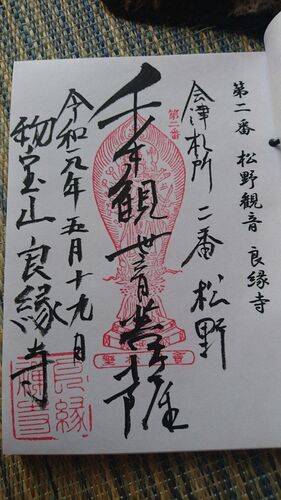 第二番 松野観音 良縁寺
会津札所 二番 松野
第二番
千手觀世音菩薩
令和元年五月十九日
物宝山良縁寺
良縁禅寺